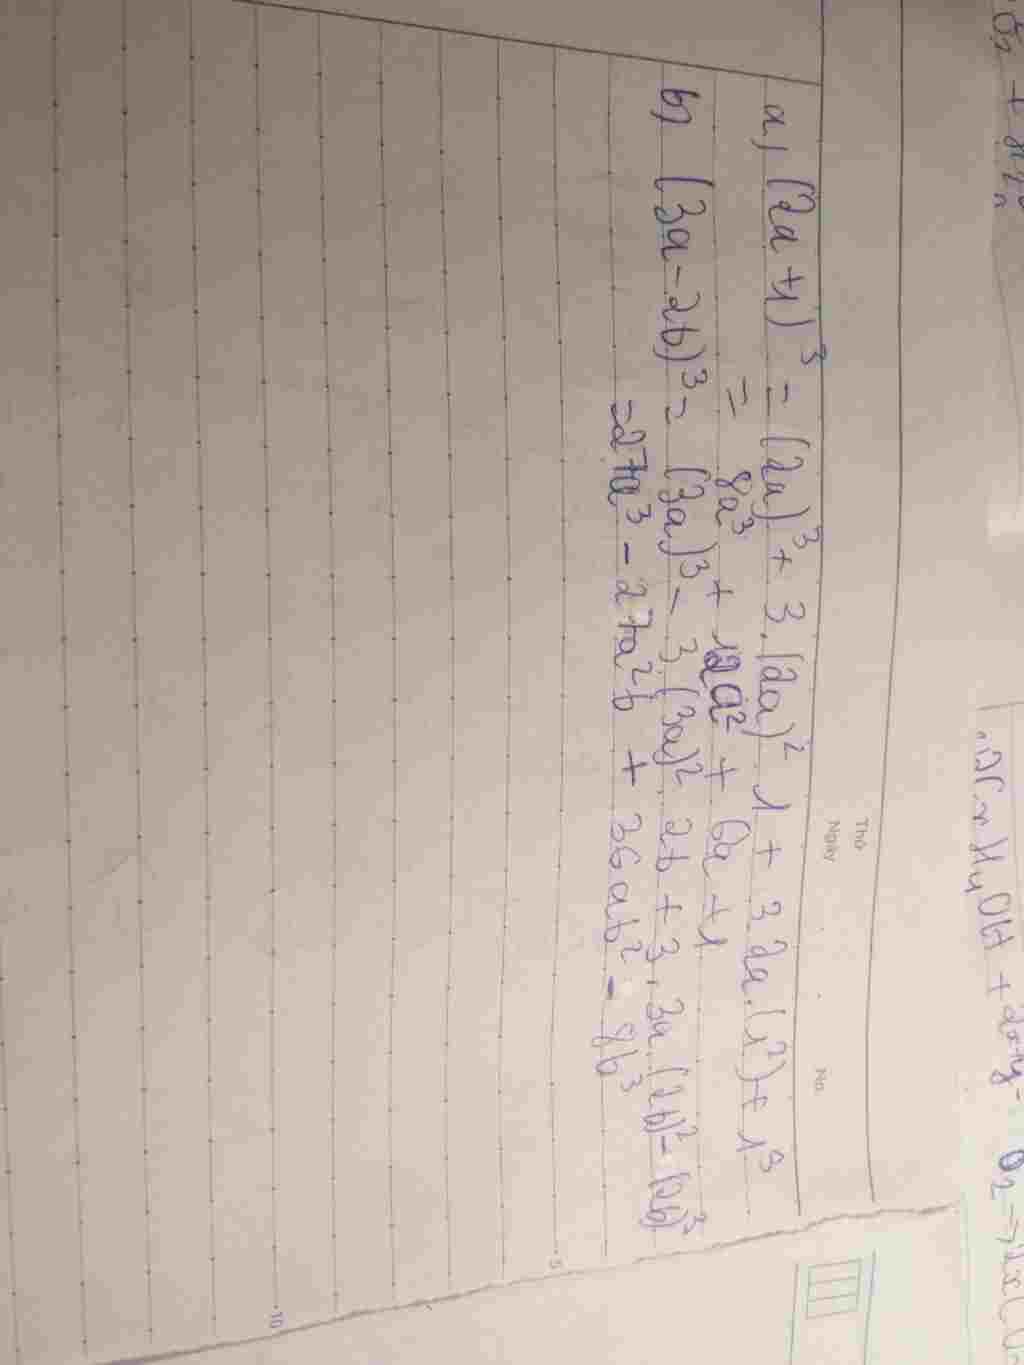 Thứ
Ngày
No.
a, (2a+1)³ = (2a)³ + 3.(2a)² 1 + 3 2a.(1²)+ 1³
= 8a³ + 12a² + 6a +1
b, (3a-2b)³ = (3a)³ - 3.(3a)² 2b + 3.3a (2b)² - (2b)³
=27a³ - 27a²b + 36ab² - 8b³
5
10